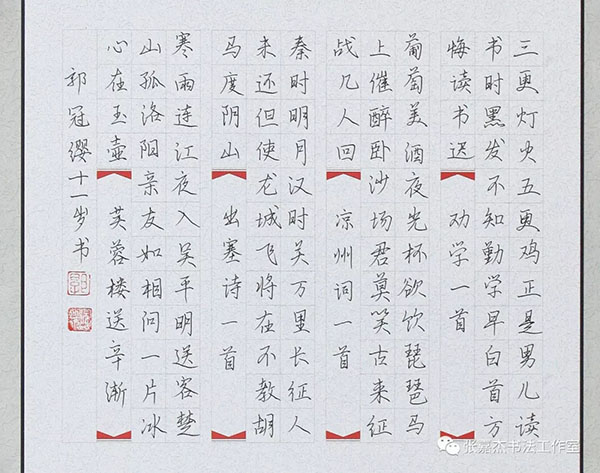 三更灯火五更鸡正是男儿读
书时黑发不知勤学早白首方
悔读书迟 劝学一首
葡萄美酒夜光杯欲饮琵琶马
上催醉卧沙场君莫笑古来征
战几人回 凉州词一首
秦时明月汉时关万里长征人
未还但使龙城飞将在不教胡
马度阴山 出塞诗一首
寒雨连江夜入吴平明送客楚
山孤洛阳亲友如相问一片冰
心在玉壶 芙蓉楼送辛渐
郭冠缨十一岁书
张嘉杰书法工作室